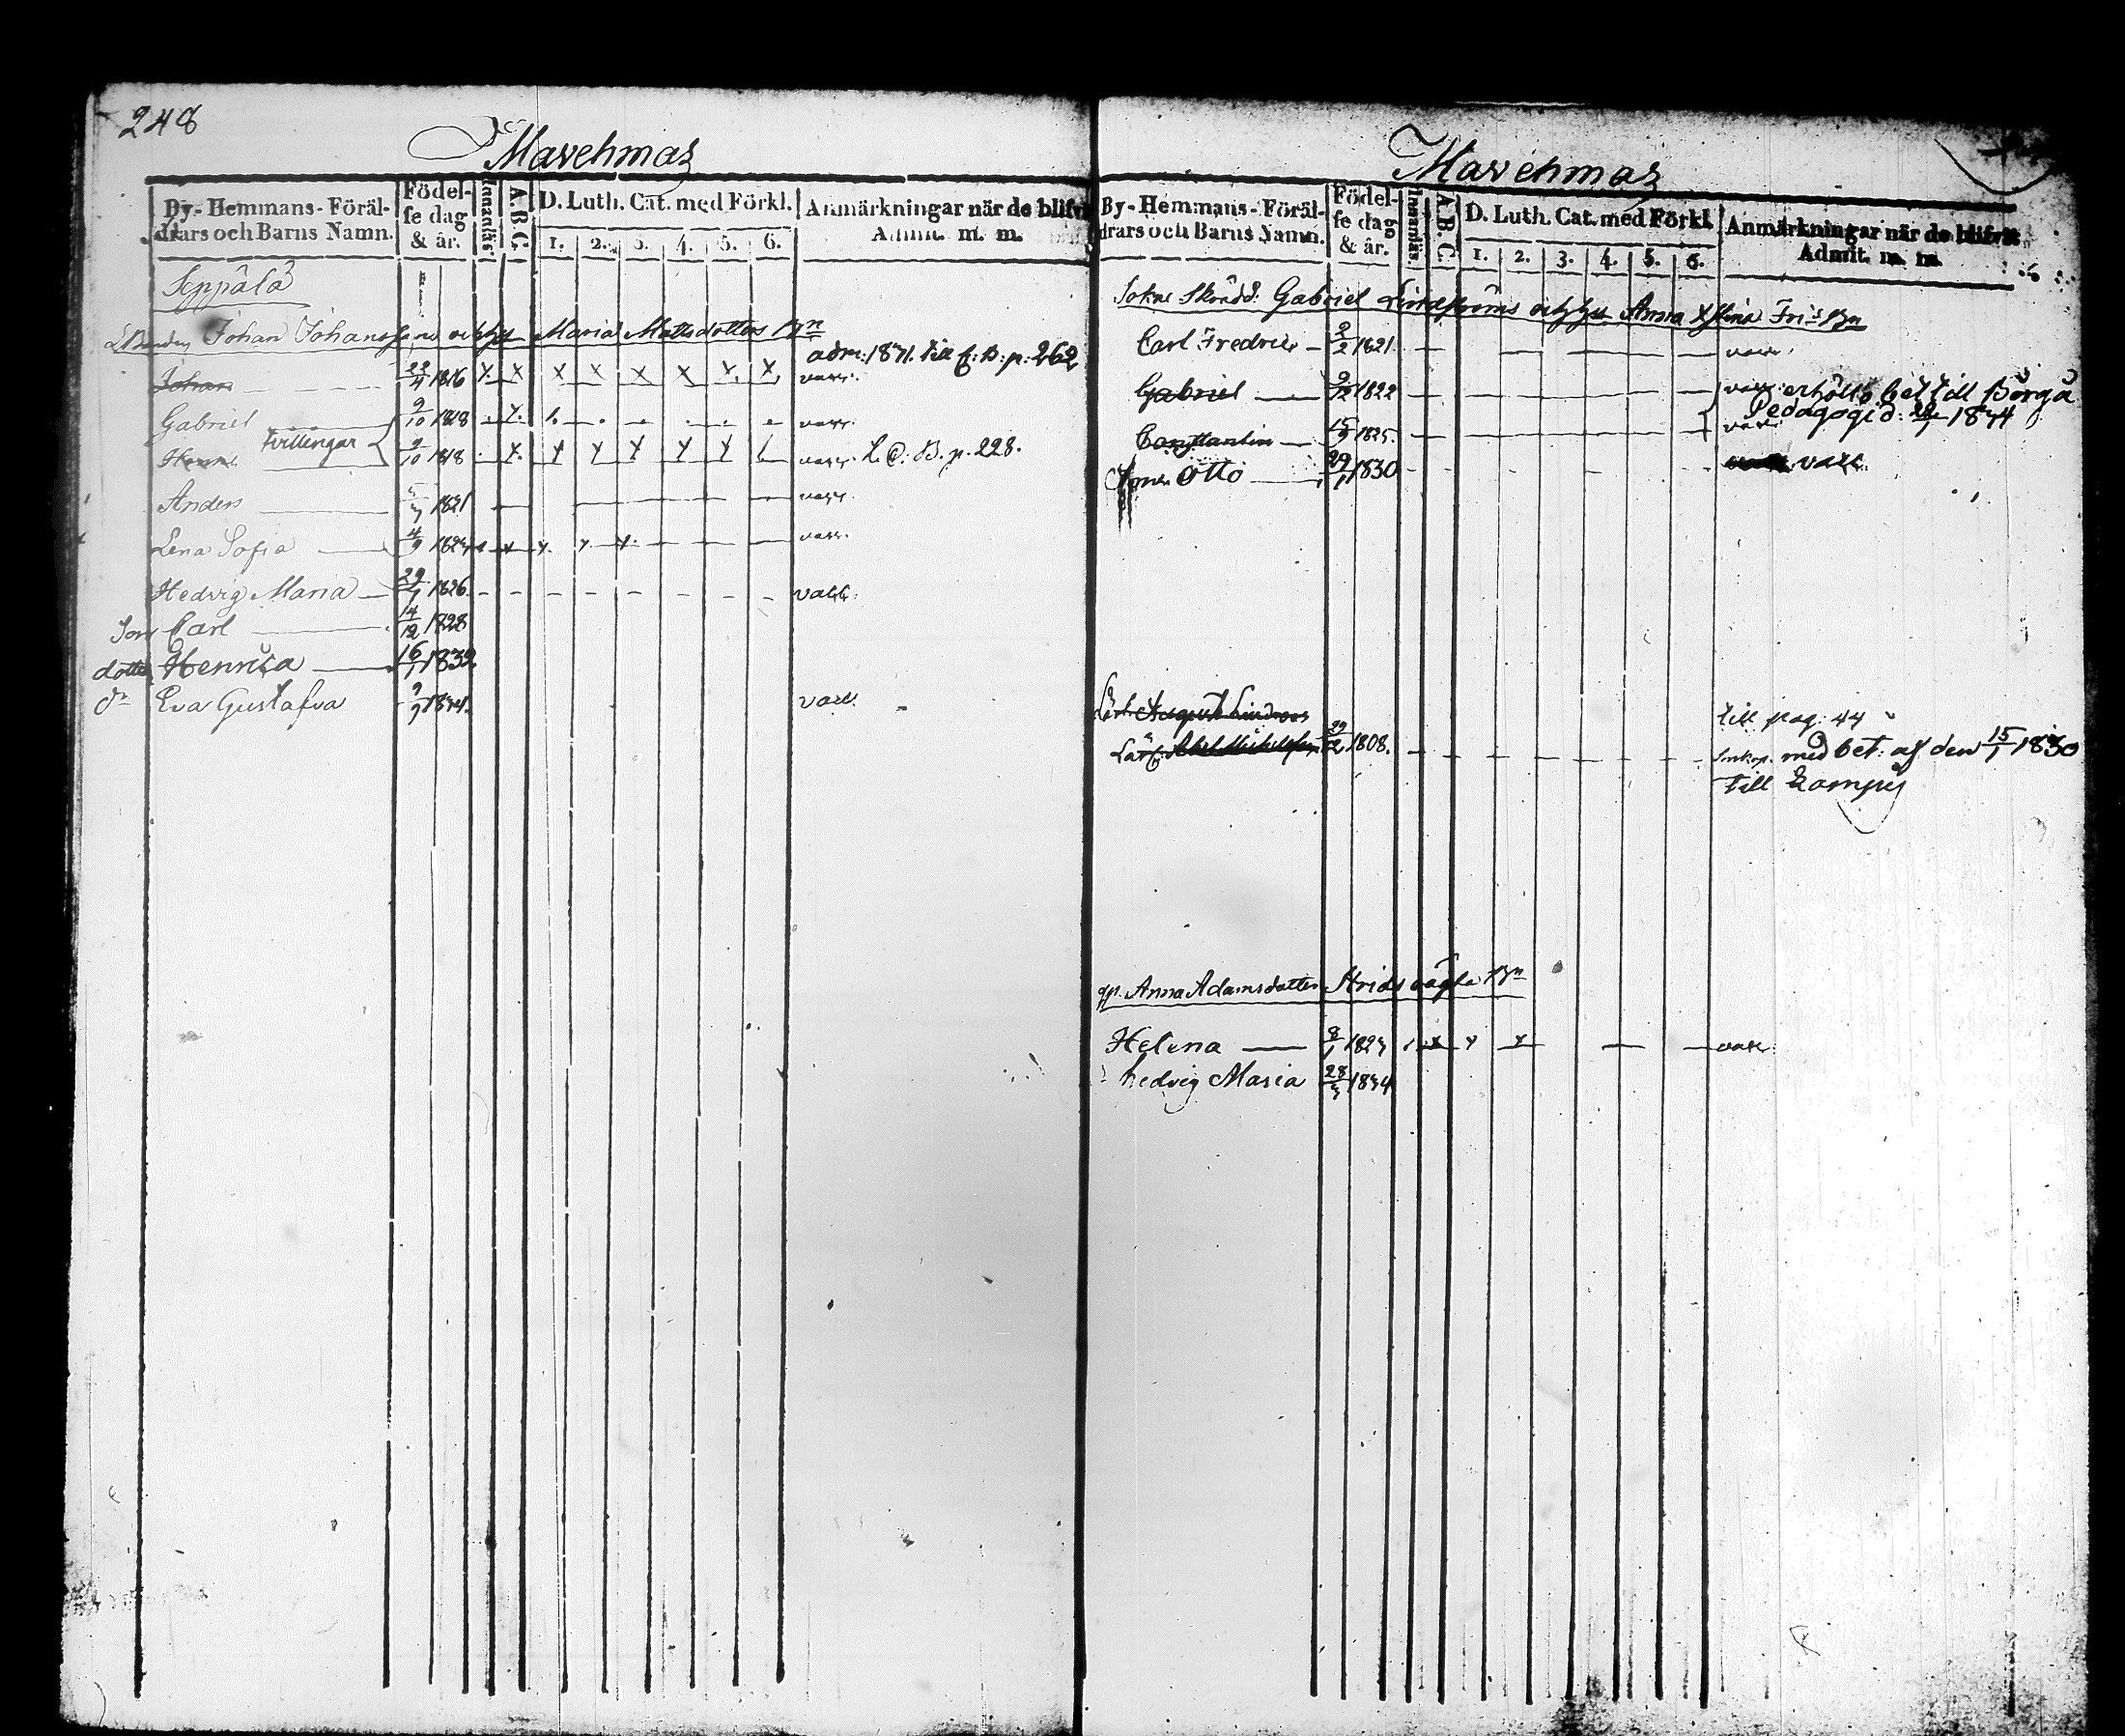 248
Mavehmaz
By- Hemmans- Föräl-
drars och Barns Namn.
Födel-
se dag
& år.
Innanläs:
A. B. C.
D. Luth. Cat. med Förkl.
1. 2. 3. 4. 5. 6.
Anmärkningar när de blifvit
Admit. m. m.
Seppälä
Johan Johanssons och hu Maria Mattsdotters Bn
Johan 23/4 1816 x x x x x x x x adm: 1831. till C: B: p: 262
vacc:
Gabriel 9/10 1818 vacc.
Tvillingar
Henric 9/10 1818 x x x x x vacc. L. C: B. p. 228.
Anders 1821 vacc.
Lena Sofia 4/9 1823 vacc.
Hedvig Maria 29/1 1826 vacc.
Son Carl 14/12 1828
dotter Henrica 16/1 1832
dn Eva Gustafva 9/9 1834. vacc.
Mavehmaz
By- Hemmans- Föräl-
drars och Barns Namn.
Födel-
se dag
& år.
Innanläs:
A. B. C.
D. Luth. Cat. med Förkl.
1. 2. 3. 4. 5. 6.
Anmärkningar när de blifvit
Admit. m. m.
Sokne Skrädd: Gabriel Lindströms och hu Anna Xstina Bn
Carl Fredric 2/2 1821 vacc.
Gabriel 9/12 1822 vacc. erhöllo bet till Borgå
Constantin 15/9 1825. vacc. Pedagogie: 1834
Son Otto 29/1 1830 vacc.
Lärl. August Lindroos till pag: 44
Lärl. 1808. med bet: af den 15/1 1830
till
Anna Adamsdotter Bn
Helena 8/1 1823 x x vacc.
hedvig Maria 28/3 1834